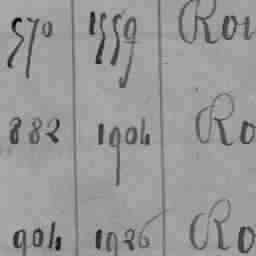 570 1559 Rou
882 1904 Ro
904 1926 Ro